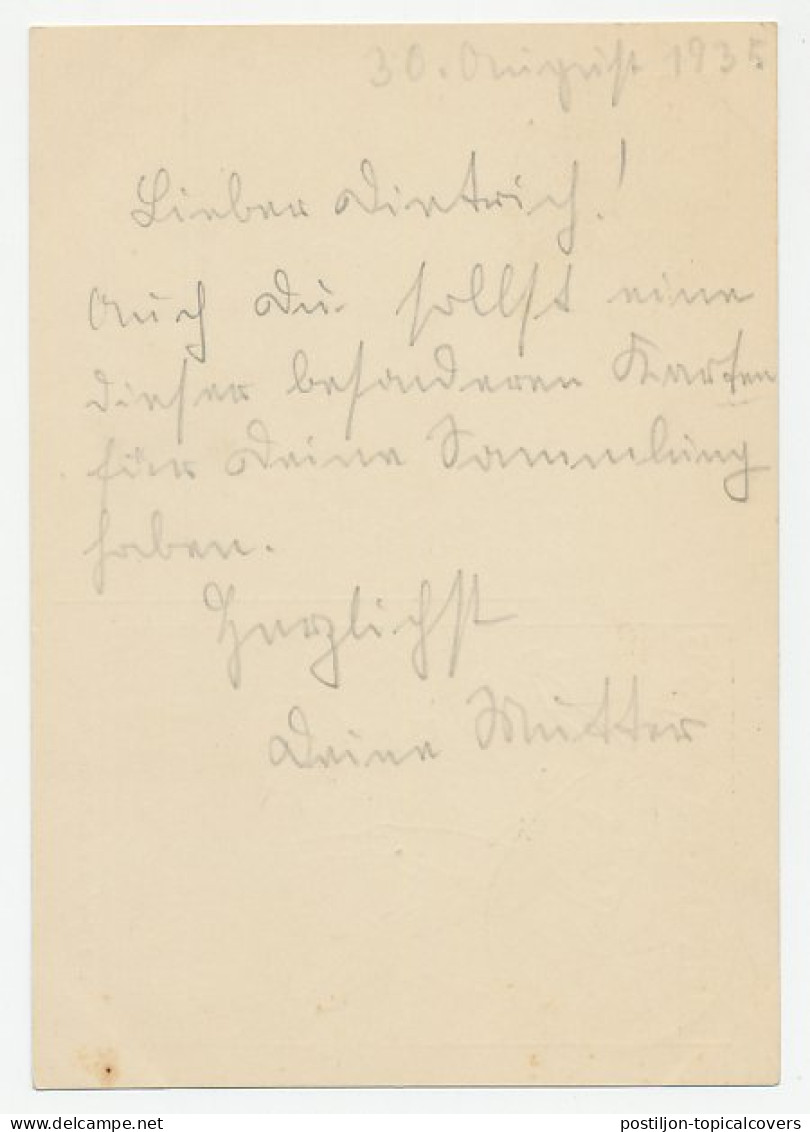 30. August 1935
Lieber Dietrich!
Auch Du sollst eine
dieser besonderen Karten
für Deine Sammlung
haben.
Herzlichst
Deine Mutter
postiljon-topicalcovers